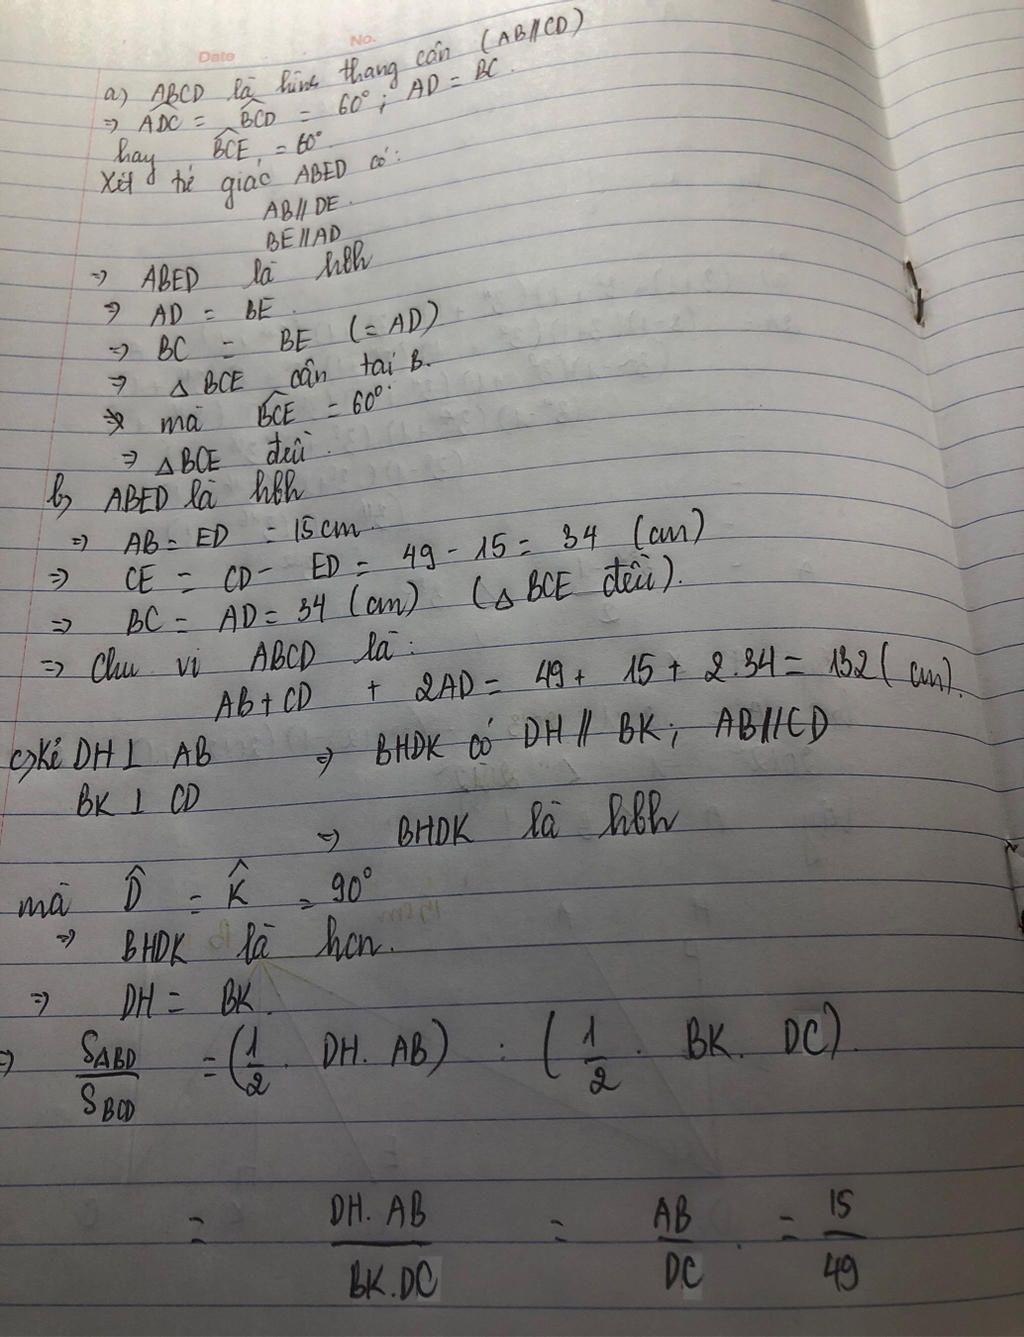 Date No.
a) ABCD là hình thang cân (AB//CD)
⇒ ADC = BCD = 60°; AD = BC.
hay BCE = 60°.
Xét tứ giác ABED có:
AB//DE.
BE//AD
⇒ ABED là hbh
⇒ AD = BE.
⇒ BC = BE (= AD)
⇒ △ BCE cân tại B.
mà BCE = 60°.
⇒ △BCE đều.
b) ABED là hbh
⇒ AB = ED = 15cm.
⇒ CE = CD - ED = 49 - 15 = 34 (cm)
⇒ BC = AD = 34 (cm) (△ BCE đều).
⇒ Chu vi ABCD là:
AB + CD + 2AD = 49 + 15 + 2.34 = 132 (cm).
c) Kẻ DH ⊥ AB ⇒ BHDK có DH // BK; AB//CD
BK ⊥ CD
⇒ BHDK là hbh
mà D̂ = K̂ = 90°
⇒ BHDK là hcn.
⇒ DH = BK.
⇒ S△ABD / SBCD = (1/2 . DH. AB) : (1/2 . BK. DC).
= DH. AB / BK.DC = AB / DC . = 15 / 49